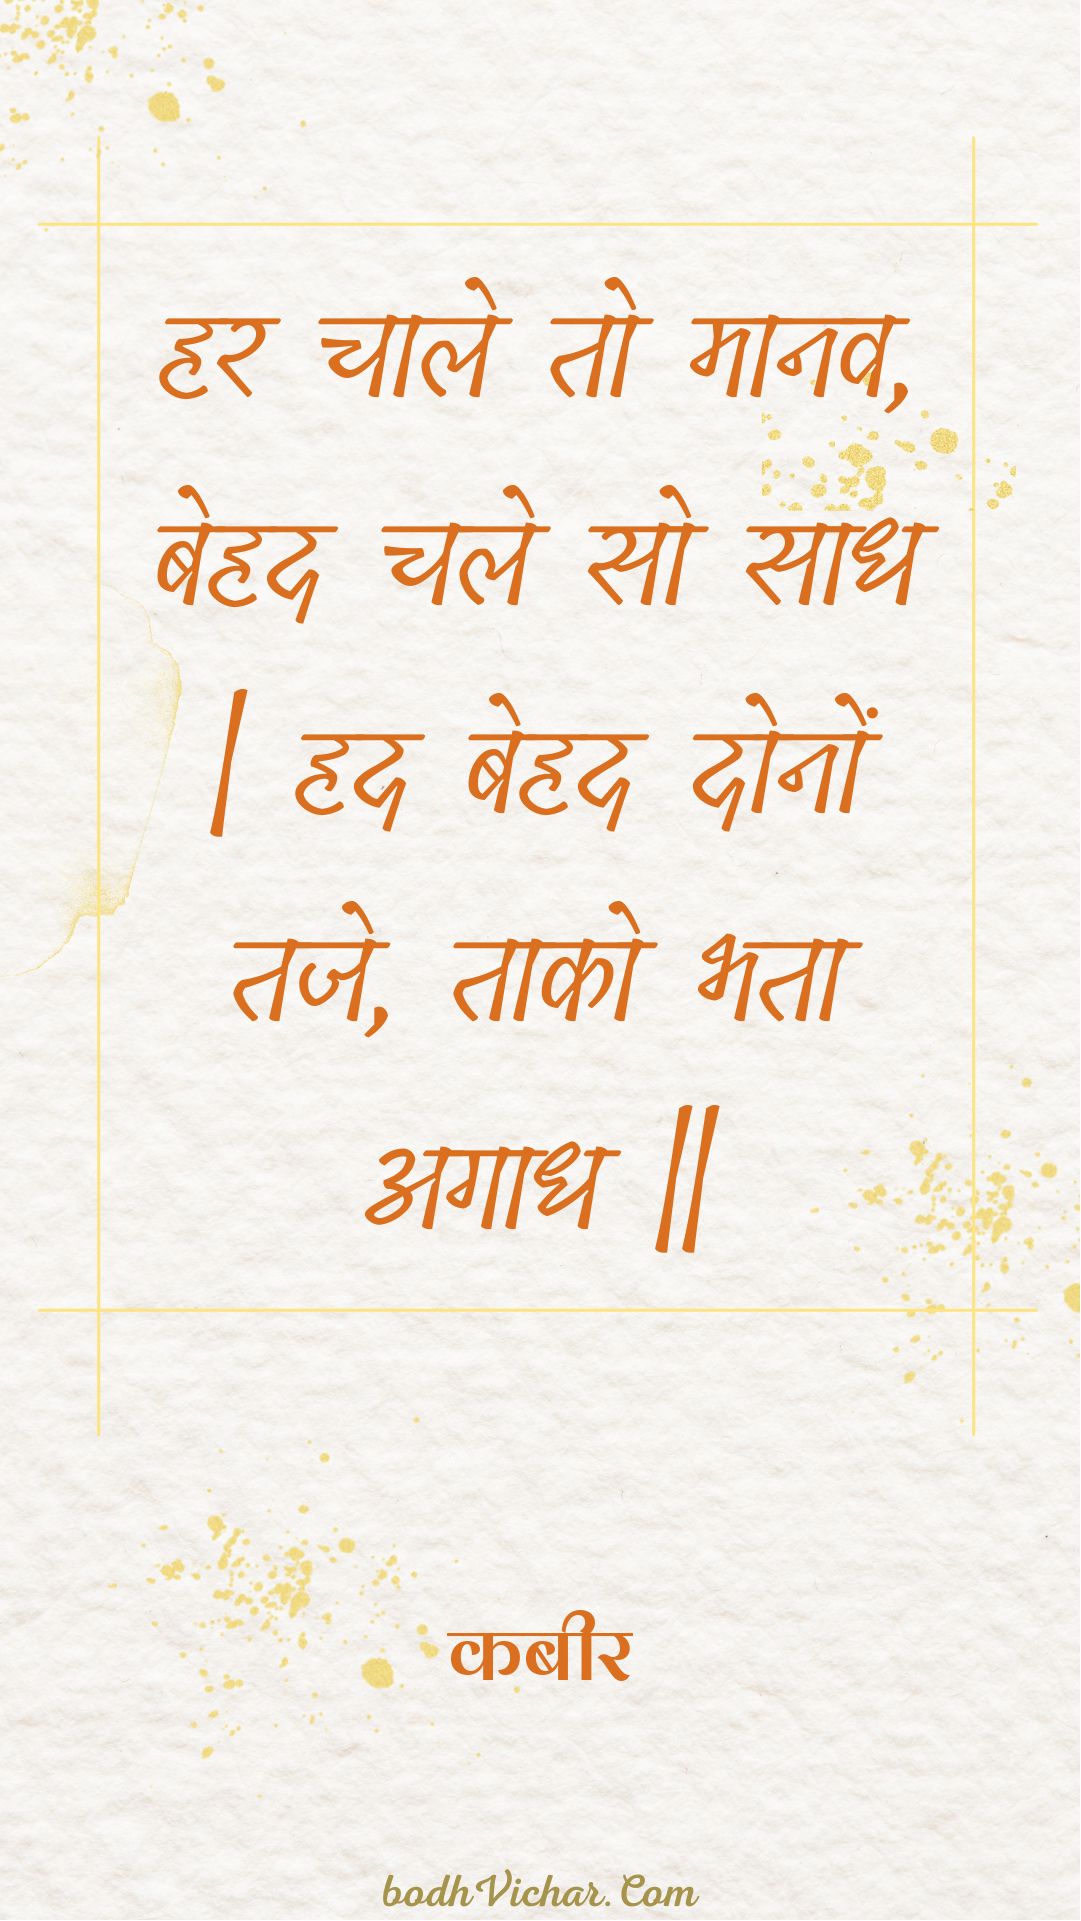 हर चाले तो मानव,
बेहद चले सो साध
| हद बेहद दोनों
तजे, ताको भता
अगाध ||
कबीर
bodhVichar.Com